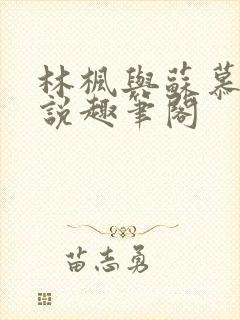 林楓與蘇慕
說趣筆閣
苗志勇